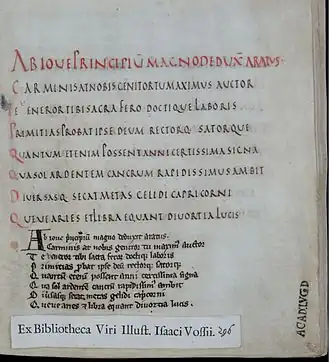 AB IOVE PRINCIPIŪ MAGNO DEDUX̄ ARATUS·
CARMINIS AT NOBIS GENITOR TU MAXIMUS AUCTOR
TE VENEROR TIBI SACRA FERO DOCTIQUE LABORIS
PRIMITIAS PROBAT IPSE DEUM RECTORQ SATORQUE
QUANTUM ETENIM POSSENT ANNI CERTISSIMA SIGNA
QUA SOL ARDENTEM CANCRUM RAPIDISSIMUS AMBIT
DIVERSASQ SECAT METAS GELIDI CAPRICORNI
QUEVE ARIES ET LIBRA EQUANT DIVORTIA LUCIS
Ab ioue principiū magno deduxit aratus.
Carminis at nobis genitor tu maxim᷒ auctor
Te veneror tibi sacra ferat doctiq laboris
Primitias probat ipse deū rectorq satorq
Quantū etenī possent anni certissima signa
Qua sol ardentē cancrū rapidissim᷒ ambit
Diūsasq secat metas gelidi capricorni
Queve aries & libra equant diuortia lucis.
Ex Bibliotheca Viri Illust. Isaaci Vossii. 296
ACADLVGD